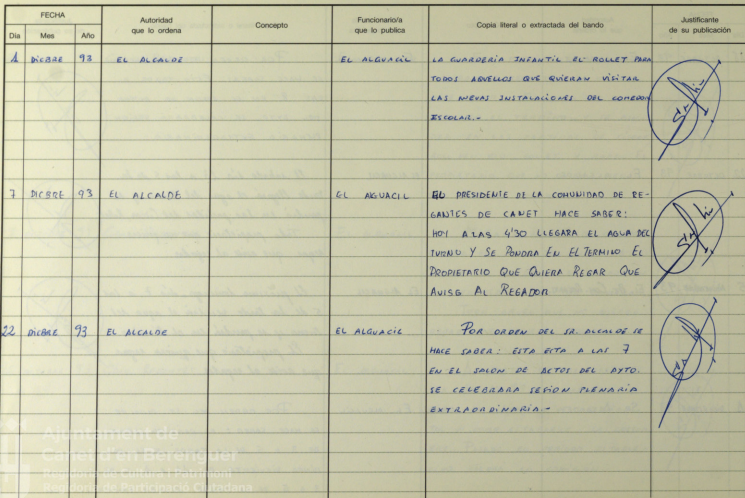 FECHA
Día Mes Año
Autoridad
que lo ordena
Concepto
Funcionario/a
que lo publica
Copia literal o extractada del bando
Justificante
de su publicación
1 DICBRE 93 EL ALCALDE EL ALGUACIL LA GUARDERIA INFANTIL EL ROLLET PARA
TODOS AQUELLOS QUE QUIERAN VISITAR
LAS NUEVAS INSTALACIONES DEL COMEDOR
ESCOLAR.-
7 DICBRE 93 EL ALCALDE EL AGUACIL EL PRESIDENTE DE LA COMUNIDAD DE RE-
GANTES DE CANET HACE SABER:
HOY A LAS 4'30 LLEGARA EL AGUA DEL
TURNO Y SE PONDRA EN EL TERMINO EL
PROPIETARIO QUE QUIERA REGAR QUE
AVISE AL REGADOR
22 DICBRE 93 EL ALCALDE EL ALGUACIL POR ORDEN DEL SR. ALCALDE SE
HACE SABER: ESTA A LAS 7
EN EL SALON DE ACTOS DEL AYTO.
SE CELEBRARA SESION PLENARIA
EXTRAORDINARIA.-
Ajuntament de
Canet d'en Berenguer
Regidoria de Cultura i Patrimoni
Regidoria de Participació Ciutadana